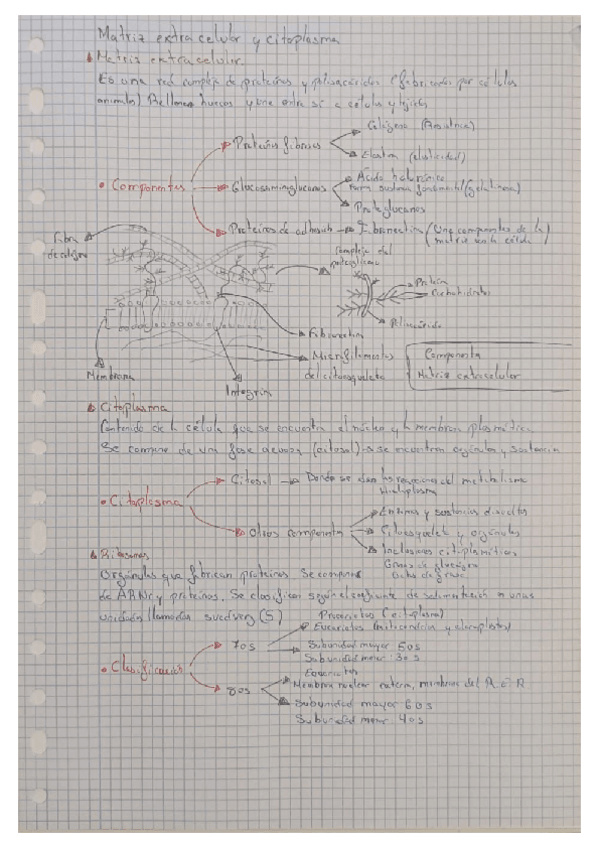 Matriz extracelular y citoplasma
Matriz extracelular
Es una red compleja de proteínas y polisacáridos (fabricados por células
animales) Rellenan huecos y une entre sí a célula y tejidos
Colágeno (Resistencia)
Proteínas fibrosas
Elastina (elasticidad)
Ácido hialurónico
Componentes
Glucosaminoglucanos
Forma sustancia fundamental (gelatinosa)
Proteglucanos
Proteínas de adhesión → Fibronectina (Une componentes de la
matriz con la célula)
Fibra
de colágeno
Complejo del
proteoglicano
Proteína
Carbohidratos
Polisacárido
Fibronectina
Microfilamentos
del citoesqueleto
Componentes
Matriz extracelular
Membrana
Integrina
Citoplasma
Contenido de la célula que se encuentra el núcleo y la membrana plasmática
Se compone de una fase acuosa (citosol) → se encuentran orgánulos y sustancia
Citosol → Donde se dan las reacciones del metabolismo
Hialoplasma
Citoplasma
Enzimas y sustancias disueltas
Otros componentes
Citoesqueleto y orgánulos
Inclusiones citoplasmáticas
Gotas de grasa
Ribosomas
Orgánulos que fabrican proteínas Se compone
de ARNr y proteínas. Se clasifican según el coeficiente de sedimentación en unas
unidades llamadas svedverg (S)
Procariotas (citoplasma)
Eucariotas (mitocondrias y cloroplastos)
70s
Subunidad mayor 50s
Subunidad menor 30s
Clasificación
Eucariotas
80s
Membrana nuclear externa, membrana del R.E.R
Subunidad mayor 60s
Subunidad menor 40s